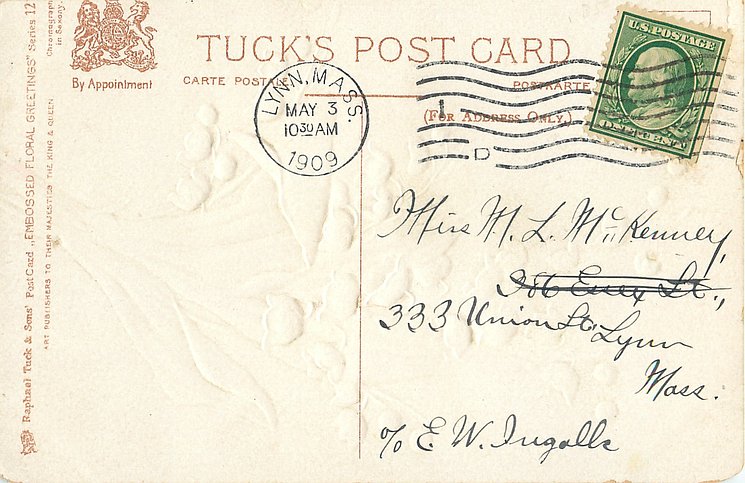 TUCK'S POST CARD
CARTE POSTALE
POSTKARTE
(FOR ADDRESS ONLY.)
By Appointment
LYNN, MASS.
MAY 3
10 30 AM
1909
1
D
U.S. POSTAGE
ONE CENT
Miss M. L. McKenney,
386 Essex St.,
333 Union St. Lynn
Mass.
c/o E. W. Ingalls
Raphael Tuck & Sons' Post Card „EMBOSSED FLORAL GREETINGS" Series 12
ART PUBLISHERS TO THEIR MAJESTIES THE KING & QUEEN
Chromographed
in Saxony.